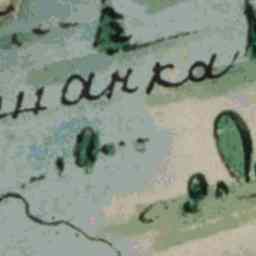 шанка